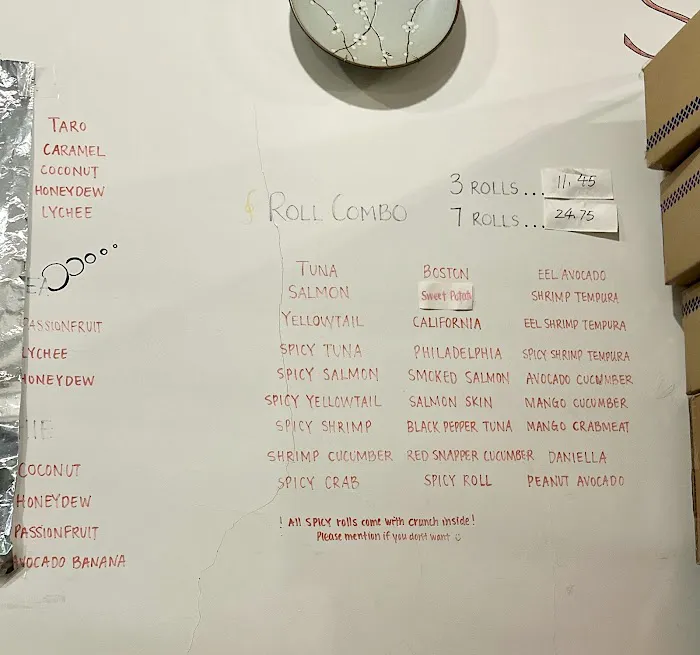 TARO
CARAMEL
COCONUT
HONEYDEW
LYCHEE
PASSIONFRUIT
LYCHEE
HONEYDEW
COCONUT
HONEYDEW
PASSIONFRUIT
AVOCADO BANANA
ROLL COMBO
3 ROLLS... 11.45
7 ROLLS... 24.75
TUNA
SALMON
YELLOWTAIL
SPICY TUNA
SPICY SALMON
SPICY YELLOWTAIL
SPICY SHRIMP
SHRIMP CUCUMBER
SPICY CRAB
BOSTON
Sweet Potato
CALIFORNIA
PHILADELPHIA
SMOKED SALMON
SALMON SKIN
BLACK PEPPER TUNA
RED SNAPPER CUCUMBER
SPICY ROLL
EEL AVOCADO
SHRIMP TEMPURA
EEL SHRIMP TEMPURA
SPICY SHRIMP TEMPURA
AVOCADO CUCUMBER
MANGO CUCUMBER
MANGO CRABMEAT
DANIELLA
PEANUT AVOCADO
! All SPICY rolls come with crunch inside!
Please mention if you don't want ☺